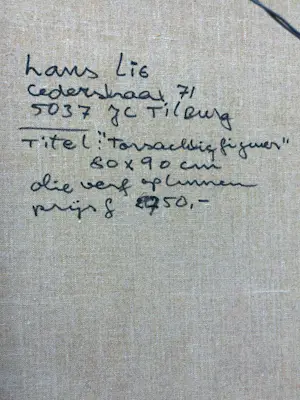 Hans Lie
Cederstraat 71
5037 JC Tilburg
Titel: "Torsachtig figuur"
80 x 90 cm
olie verf op linnen
prijs f 750,-